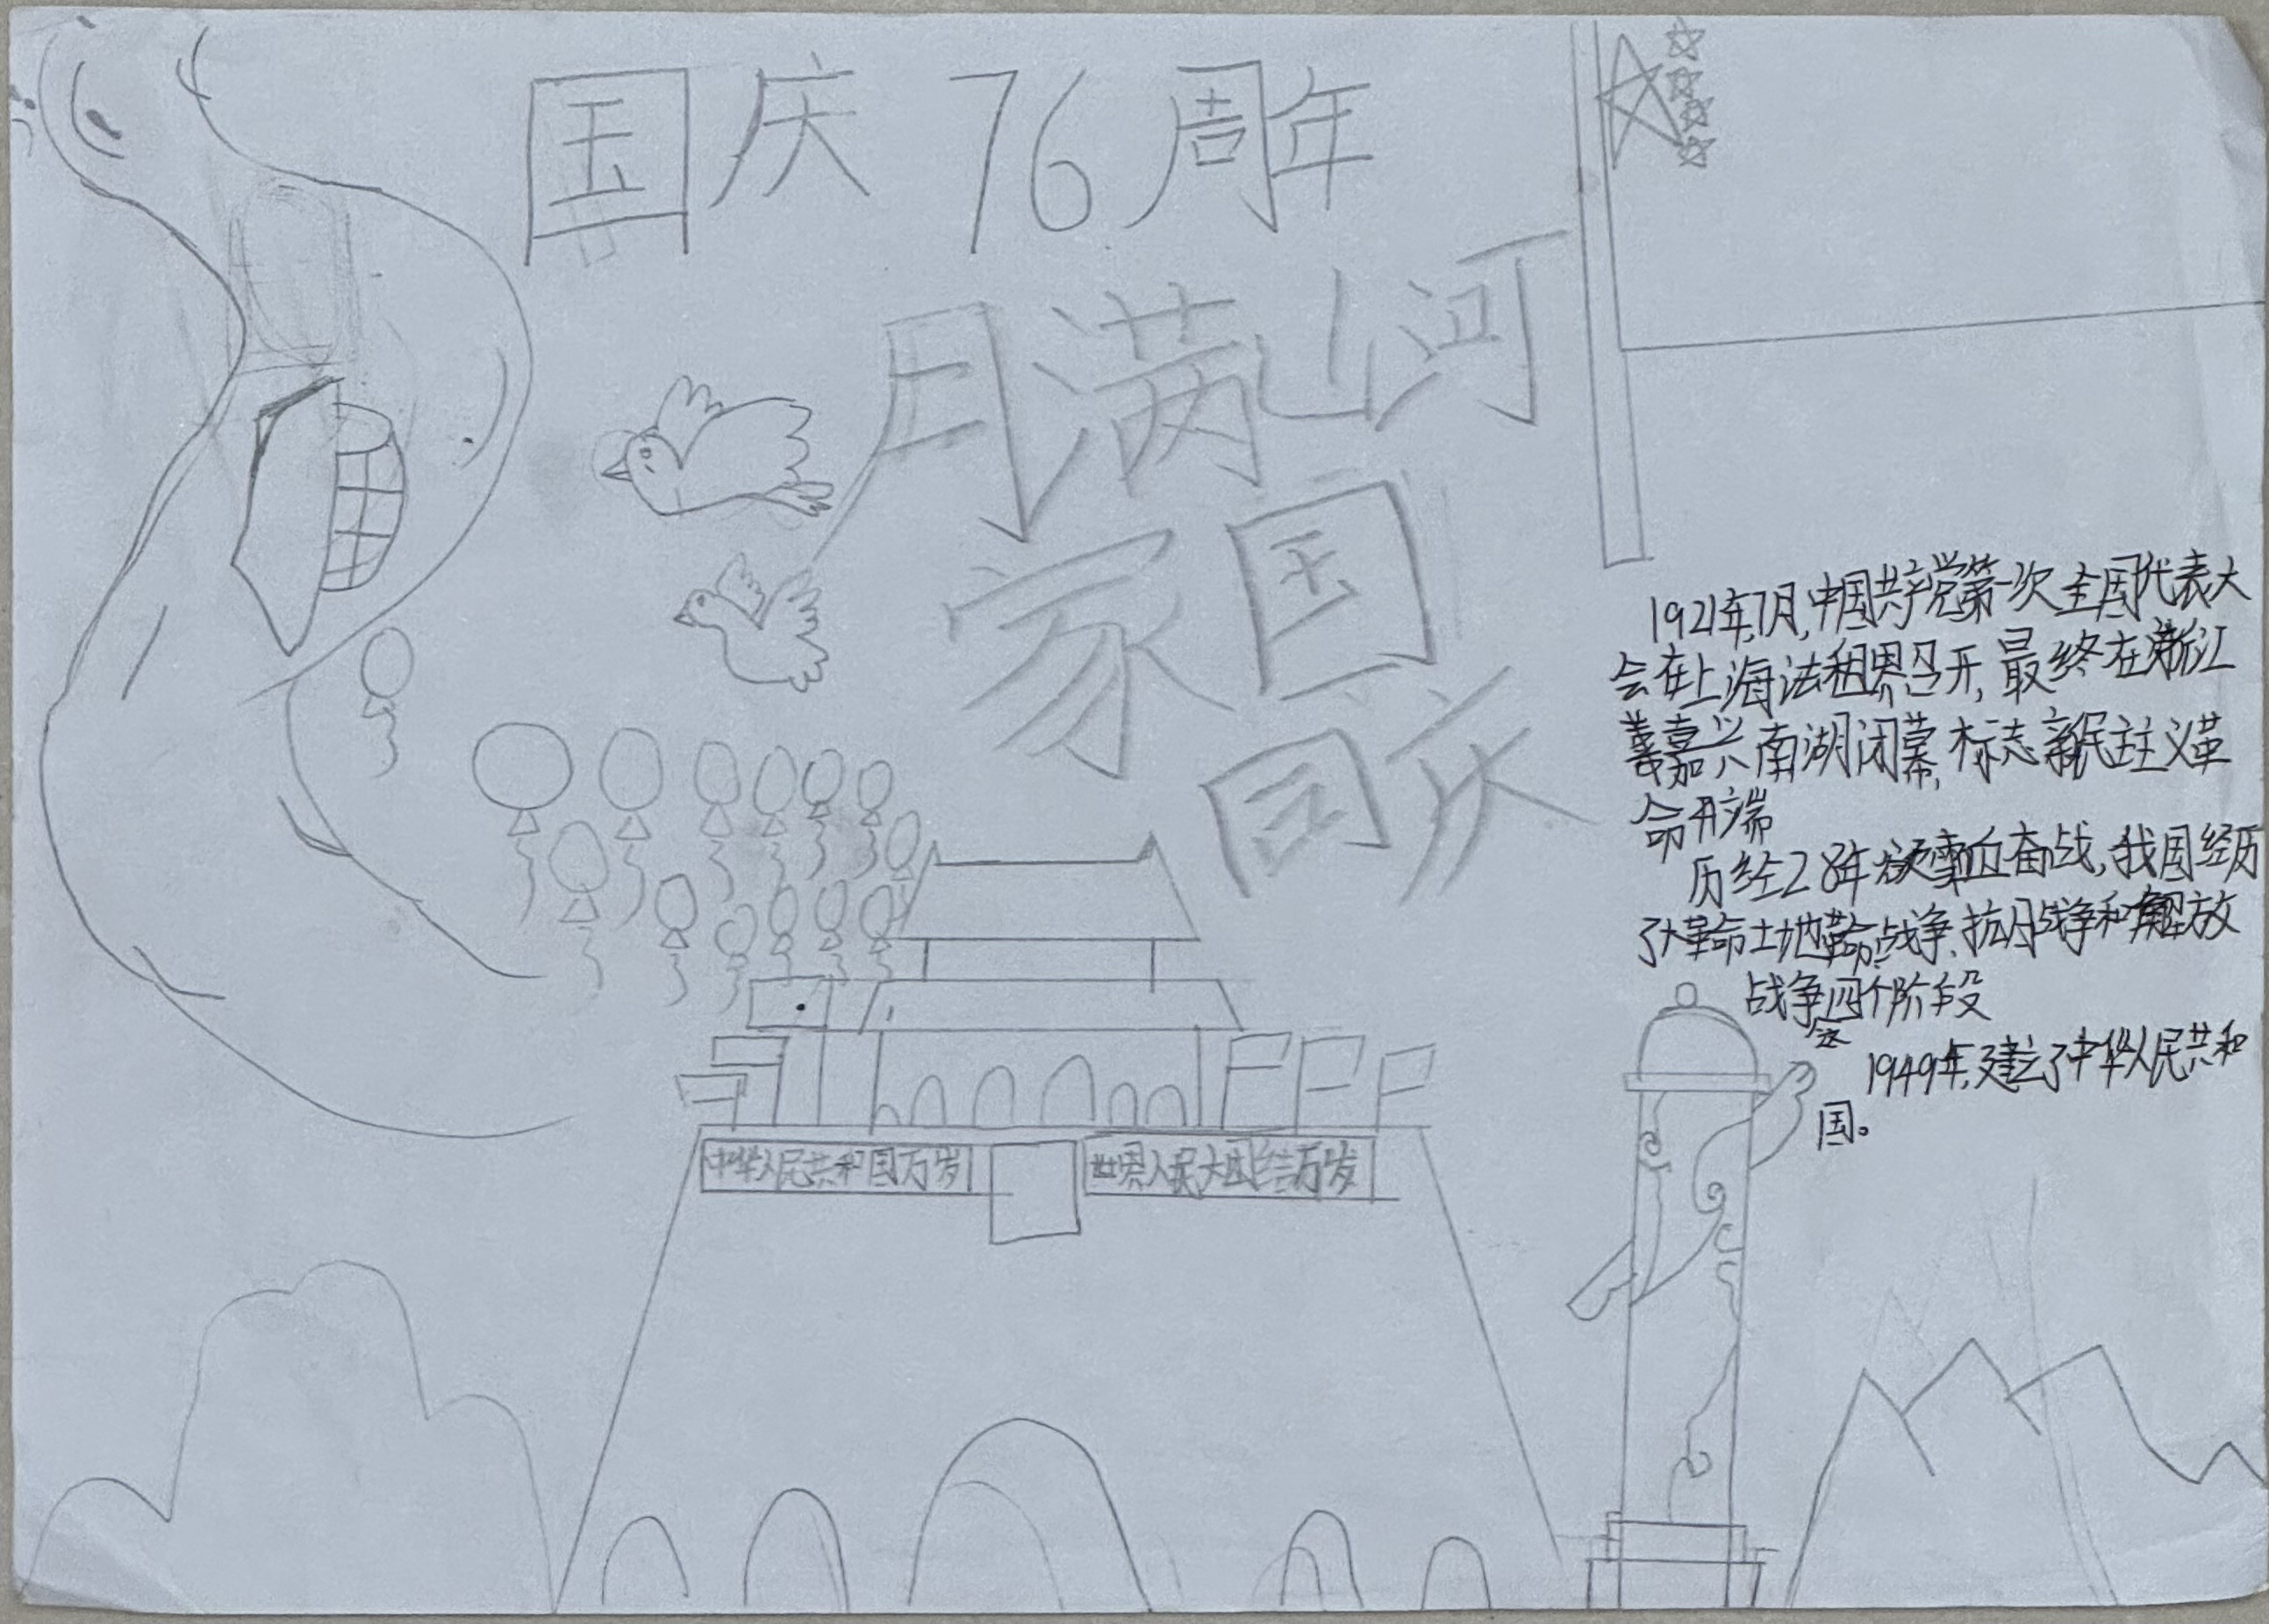 国庆76周年
月满山河
家国
国庆
1921年,7月,中国共产党第一次全国代表大
会在上海法租界召开,最终在浙江
嘉兴南湖闭幕,标志新民主义革
命开端
历经28年浴血奋战,我国经历
了大革命土地革命战争、抗日战争和解放
战争四个阶段
1949年,建立了中华人民共和
国。
中华人民共和国万岁
世界人民大团结万岁